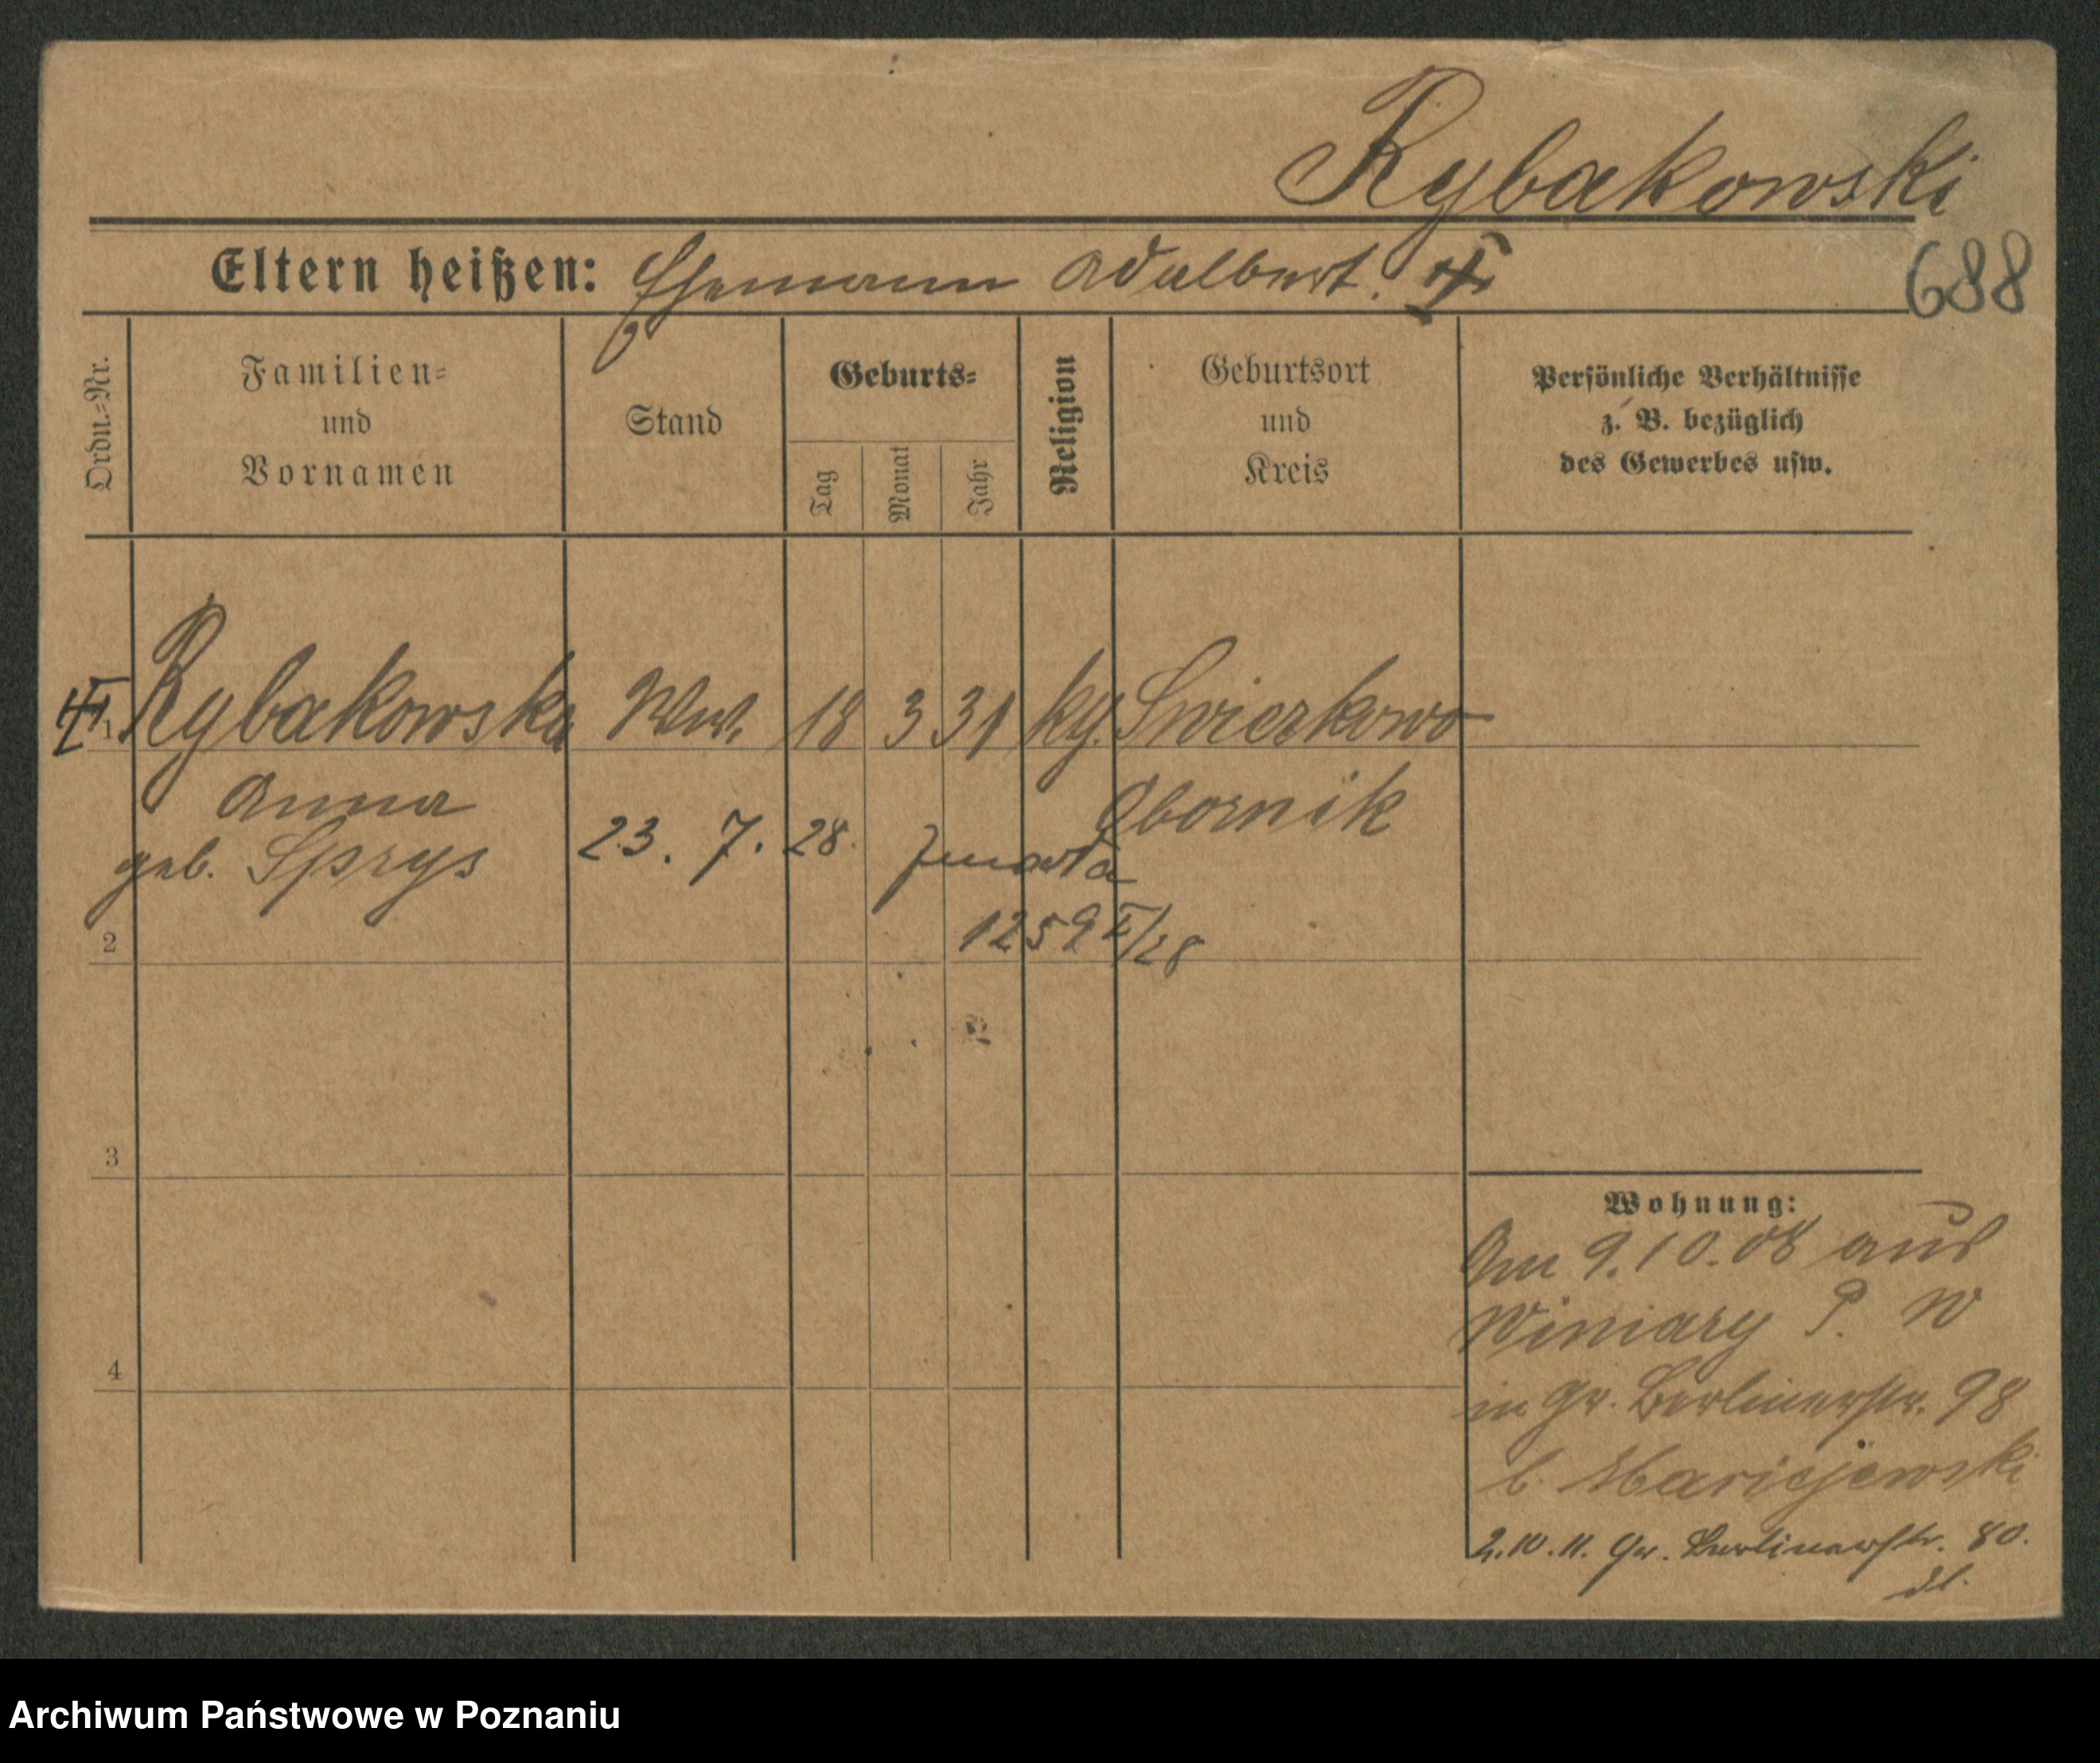 Rybakowski
Eltern heißen: Ehemann Adalbert.
688
Ordn.=Nr.
Familien=
und
Vornamen
Stand
Geburts=
Tag
Monat
Jahr
Religion
Geburtsort
und
Kreis
Persönliche Verhältnisse
z. B. bezüglich
des Gewerbes usw.
1 Rybakowska Ww. 18 3 31 kg. Swierkowo
Anna Obornik
geb. Sprys 23. 7. 28. zmarła
2 1259 II/28
3
4
Wohnung:
Am 9.10.08 aus
Winiary P. W
in Gr. Berlinerstr. 98
b. Maricjewski
2.10.11. Gr. Berlinerstr. 80.
Archiwum Państwowe w Poznaniu